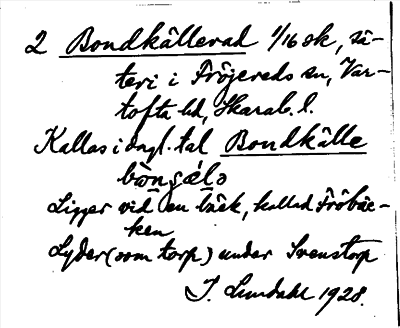 2 Bondkällerud 1/16 sk, sä-
teri i Fröjereds sn, Var-
tofta hd, Skarab. l.
Kallas i dagl. tal Bondkälle
Ligger vid en bäck, kallad Fröbäc-
ken
Lyder (som torp) under Svenstorp
J. Lundahl 1928.